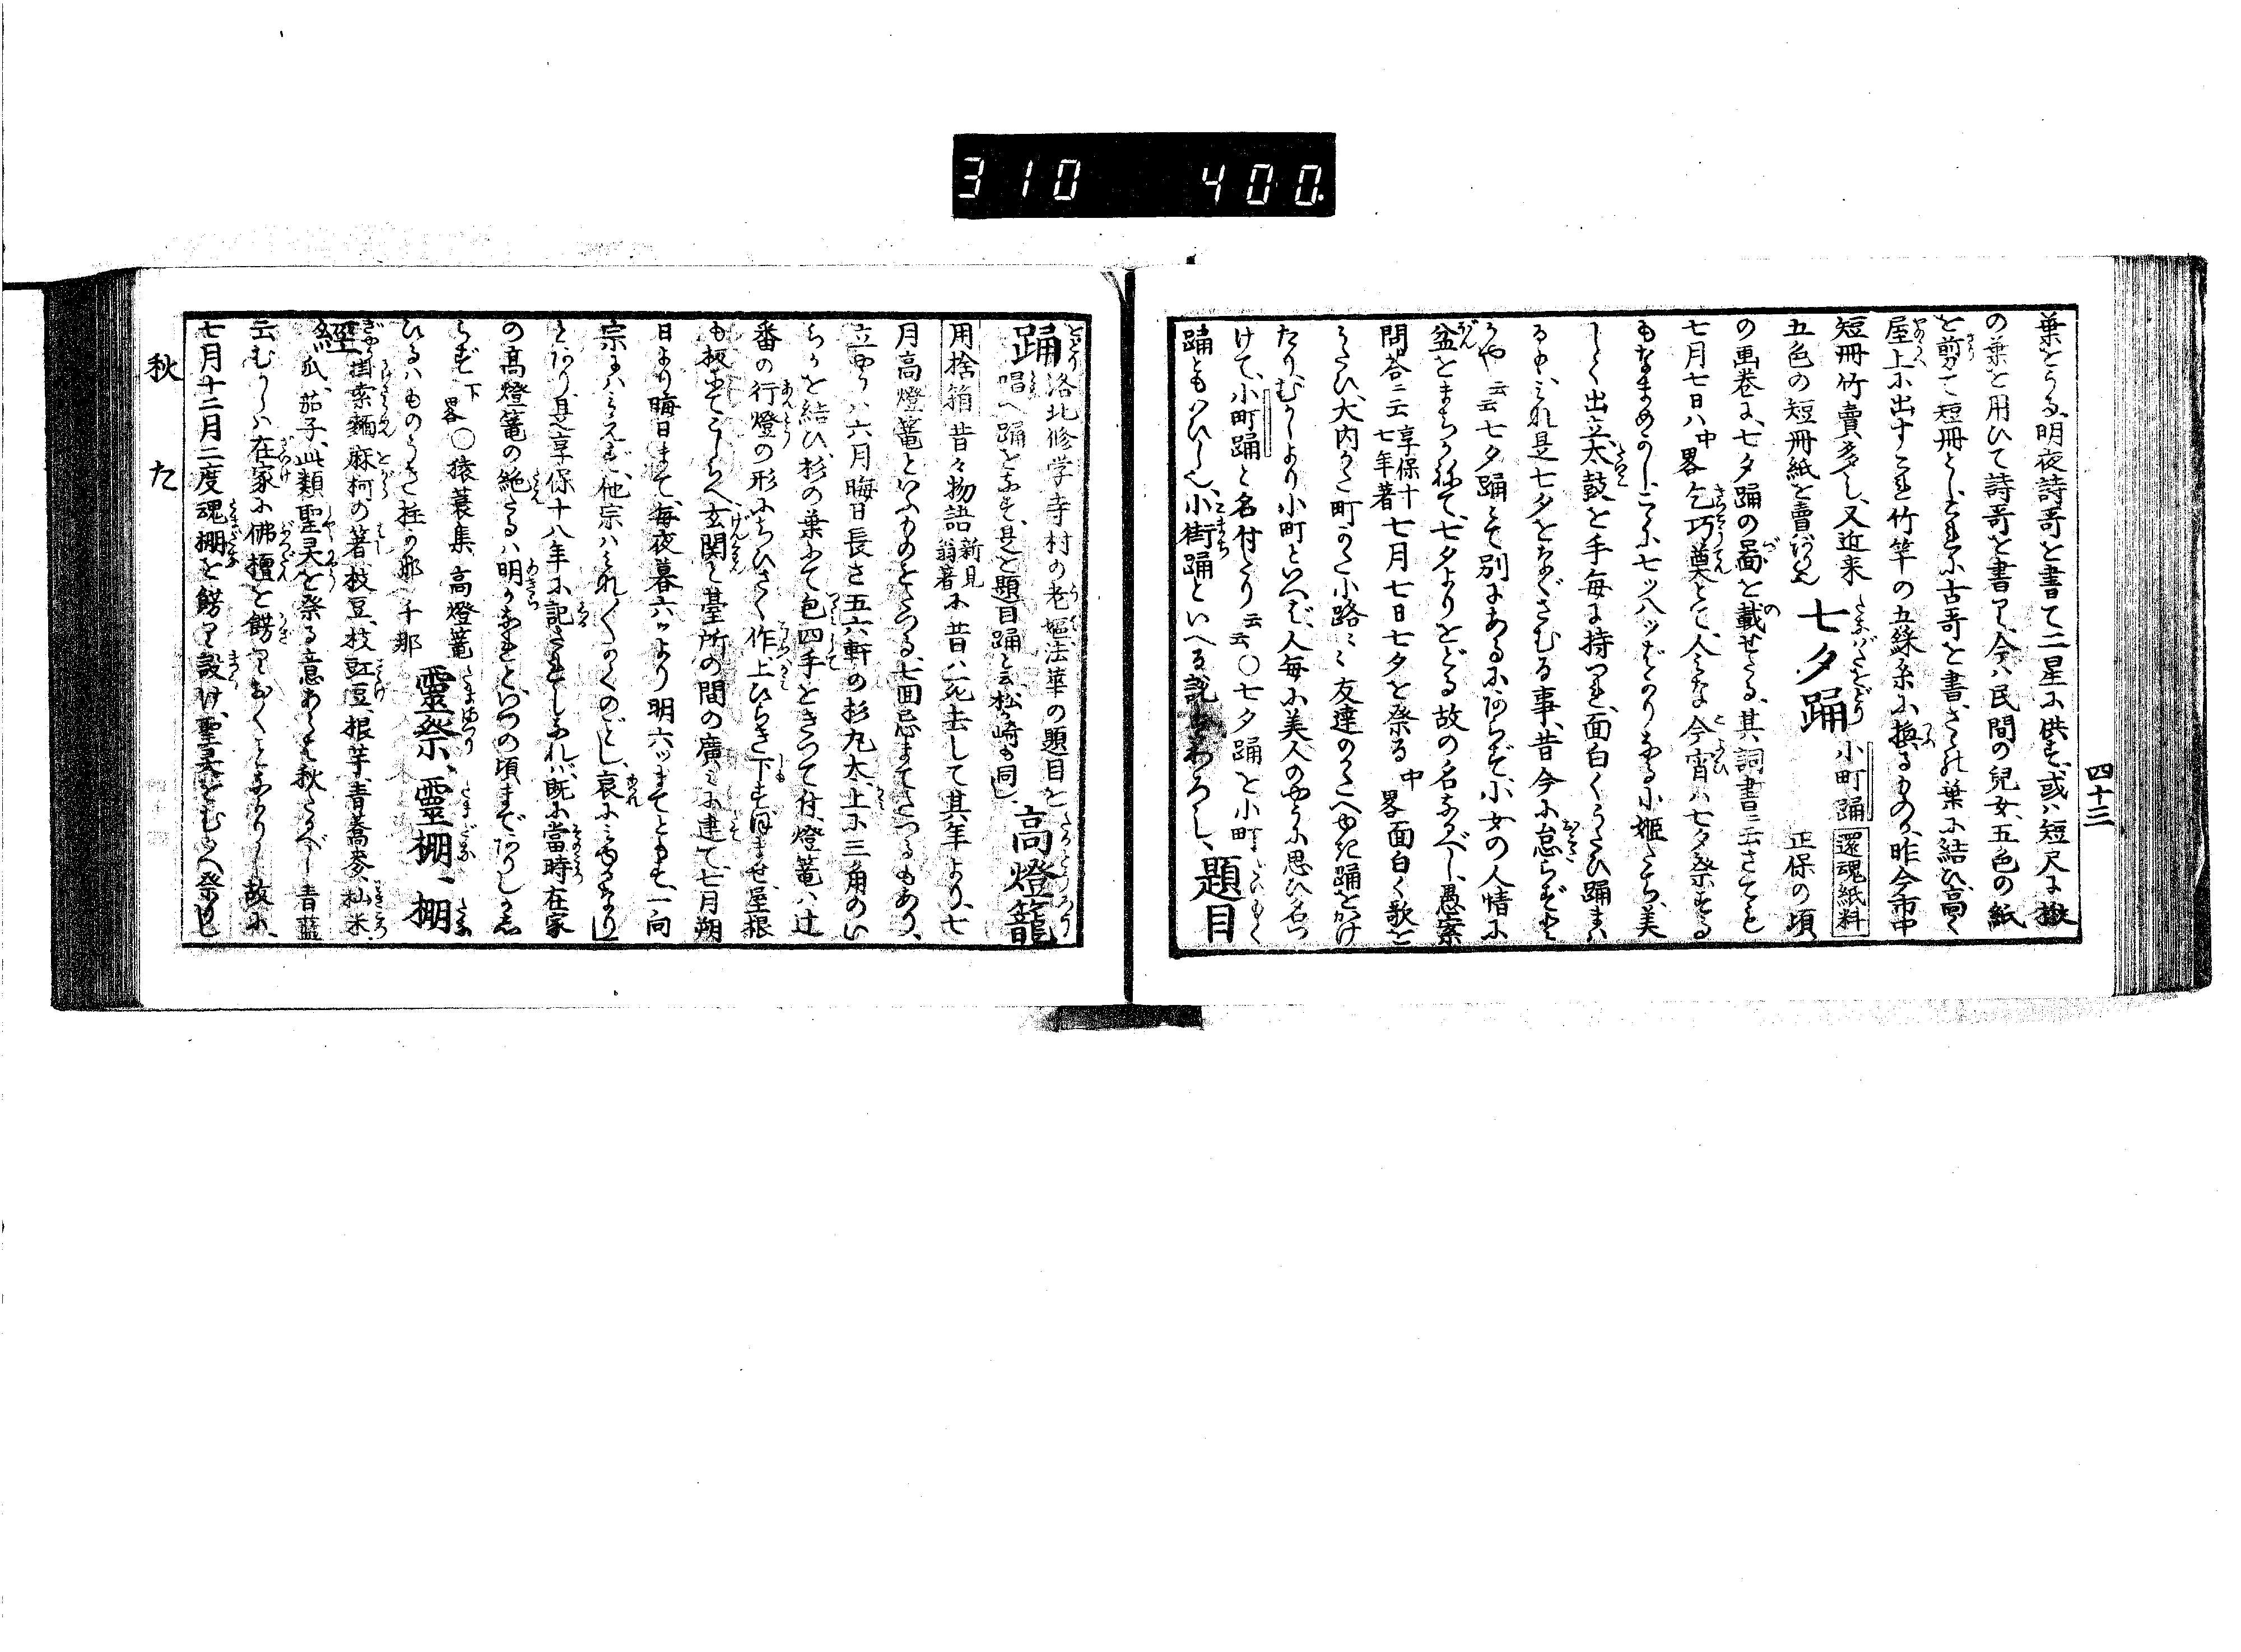 310 400.
四十三
葉とくる、明夜詩哥を書て二星に供す、或は短尺に擬
の葉を用ひて詩哥を書り、今は民間の兒女、五色の紙
を剪りて短冊とし、それに古哥を書、さゝの葉に結ひ、高く
屋上に出すこれ竹竿の五綵糸に換るものか、昨今市中
短冊竹賣多し、又近来 小町踊 還魂紙料
五色の短冊紙を賣 七夕踊 正保の頃
の画巻に、七夕踊の啚を載せたる、其詞書云さても
七月七日は 中畧 乞巧奠とて、人みな今宵は七夕祭する
もなまめかしこゝに七ッ八ッばかりなる小姫たち、美
しく出立太鼓を手毎に持つれ、面白くうたひ踊まは
るや、これ是七夕をなぐさむる事、昔今に怠らずや
うや 云云 七夕踊とて別にあるにあらず、小女の人情に
盆をまちかねて、七夕よりをどる故の名なるべし、愚案
問荅ニ云 享保十七年著 七月七日七夕を祭る 中畧 面白く歌を
うたひ、大内かた町かた小路〻〻友達のかたへゆき踊をかけ
たり、むかしより小町といへば、人毎に美人のやうに思ひ名つ
けて、小町踊と名付たり 云云 〇七夕踊を小町
踊ともいひしを、小街踊といへる説はわろし、 題目
踊 洛北修学寺村の老嫗、法華の題目を
唱へ踊をなす、是を題目踊と云、松ヶ崎も同し、 高燈籠
用捨箱 昔々物語 新見翁著 に昔は死去して其年より、七
月高燈篭といふものをたつる、七回忌までたつるもあり、
立やうは六月晦日長さ五六軒の杉丸太、上に三角のい
らかを結ひ、杉の葉にて包四手をきつて付、燈篭は辻
番の行燈の形にちひさく作、上ひらき下すぼませ、屋根
も板にてこしらへ、玄関と臺所の間の廣みに建て、七月朔
日より晦日まて、毎夜暮六ッより明六ッまてともす、一向
宗にはみえず、他宗はみれ〳〵かくのごとし、哀にみゆるなり」
とあり、是享保十八年に記されしなれば、既に當時在家
の高燈篭の絶たるは明かなれど、いつの頃までありしか志
らず 下畧 〇猿蓑集 高燈篭
ひるはものうき柱かな 千那 靈祭、靈棚、棚
經 掛索麺麻柯の箸、枝豆、枝豇豆、根芋、青蕎麥、籼米、
瓜、茄子、此類聖灵を祭る意あらは秋たるべし 青藍
云むかしは在家に佛檀を餝りおくことなかりし故に、
七月十二月二度魂棚を餝り設け、聖灵をむかへ祭りし
秋 た